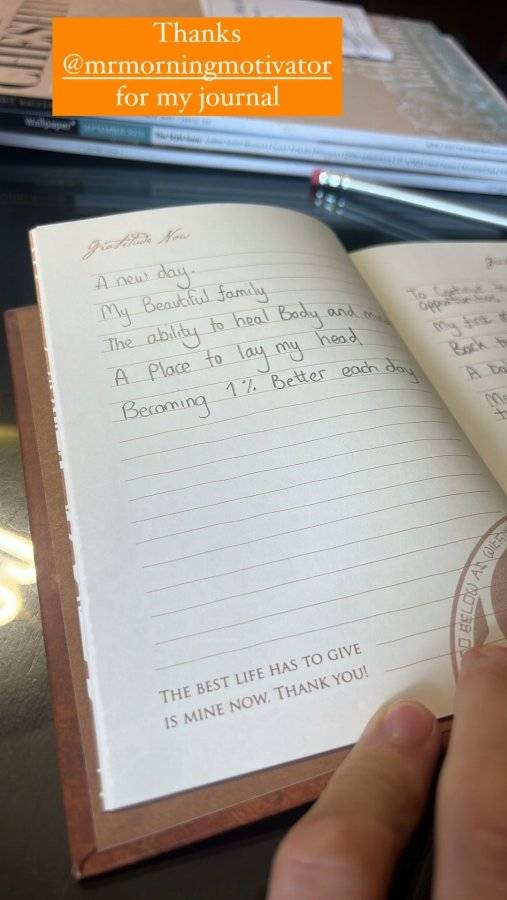 Thanks
@mrmorningmotivator
for my journal
Wallpaper*
Gratitude Now
A new day.
My Beautiful family
The ability to heal Body and
A Place to lay my head
Becoming 1% Better each day
THE BEST LIFE HAS TO GIVE
IS MINE NOW. THANK YOU!
To Continue
opportunities
My first
Back
A
BELOW AS